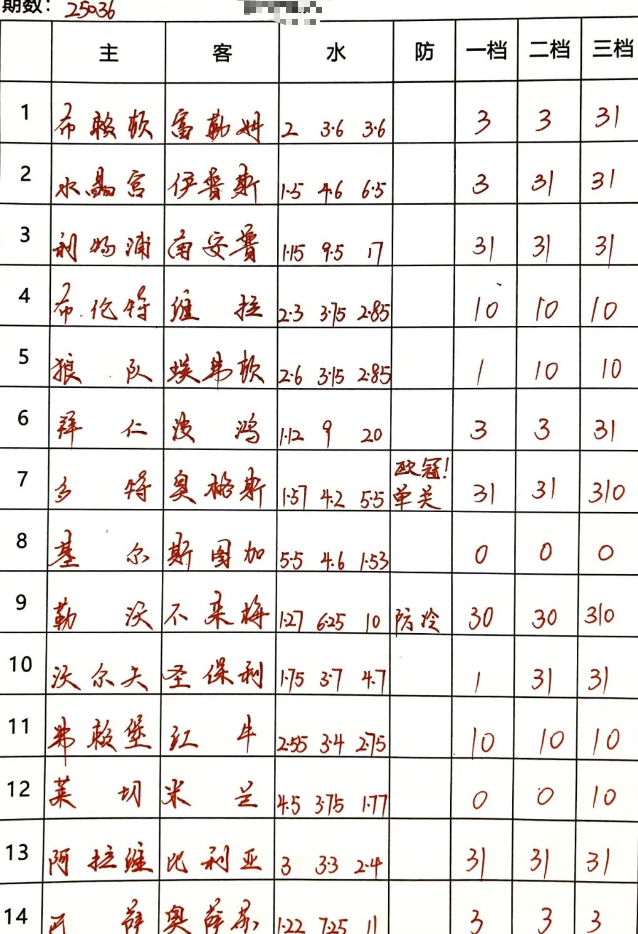 期数: 25036
主 客 水 防 一档 二档 三档
1 布赖顿 富勒姆 2 3.6 3.6 3 3 31
2 水晶宫 伊普斯 1.5 4.6 6.5 3 31 31
3 利物浦 南安普 1.15 9.5 17 31 31 31
4 布伦特 维拉 2.3 3.75 2.85 10 10 10
5 狼队 埃弗顿 2.6 3.15 2.85 1 10 10
6 拜仁 波鸿 1.12 9 20 3 3 31
7 多特 奥格斯 1.57 4.2 5.5 欧冠! 单关 31 31 310
8 基尔 斯图加 5.5 4.6 1.53 0 0 0
9 勒沃 不来梅 1.27 6.25 10 防冷 30 30 310
10 沃尔夫 圣保利 1.75 3.7 4.7 1 31 31
11 弗赖堡 红牛 2.55 3.4 2.75 10 10 10
12 莱切 米兰 4.5 3.75 1.77 0 0 10
13 阿拉维 比利亚 3 3.3 2.4 31 31 31
14 巴萨 奥萨苏 1.22 7.25 11 3 3 3